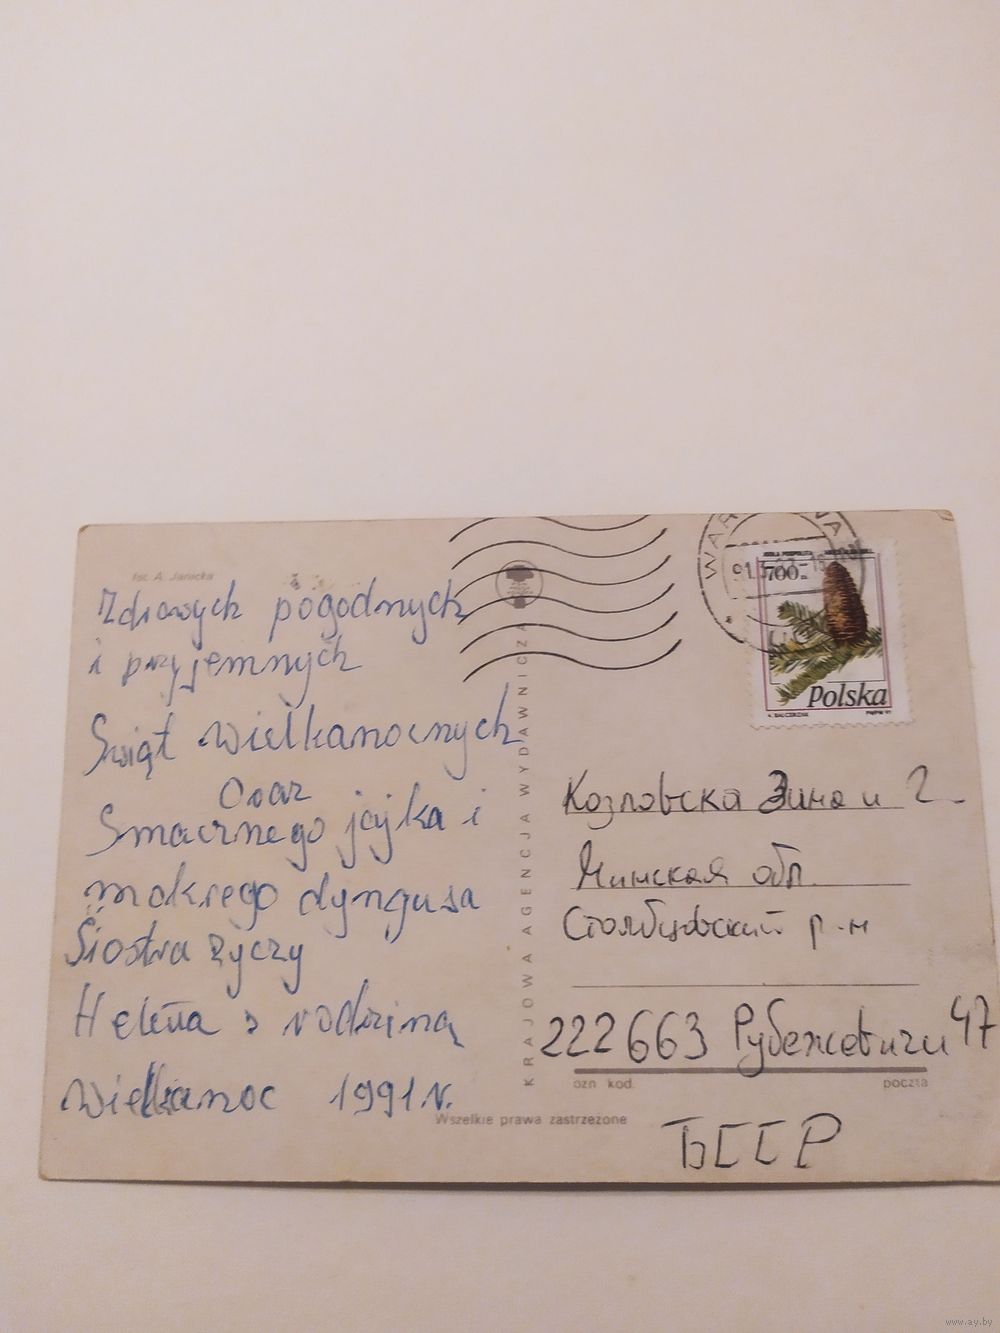 fot. A. Janicka
Zdrowych pogodnych
i przyjemnych
Świąt Wielkanocnych
Oraz
Smacznego jajka i
mokrego dyngusa
Siostra życzy
Helena z rodziną
Wielkanoc 1991 r.
KRAJOWA AGENCJA WYDAWNICZA
Wszelkie prawa zastrzeżone
WARSZAWA
700
Polska
Козловска Зина и г.
Минская обл.
Столбцовский р-н
222663 Рубежевичи 47
ozn kod. poczta
БССР
www.ay.by